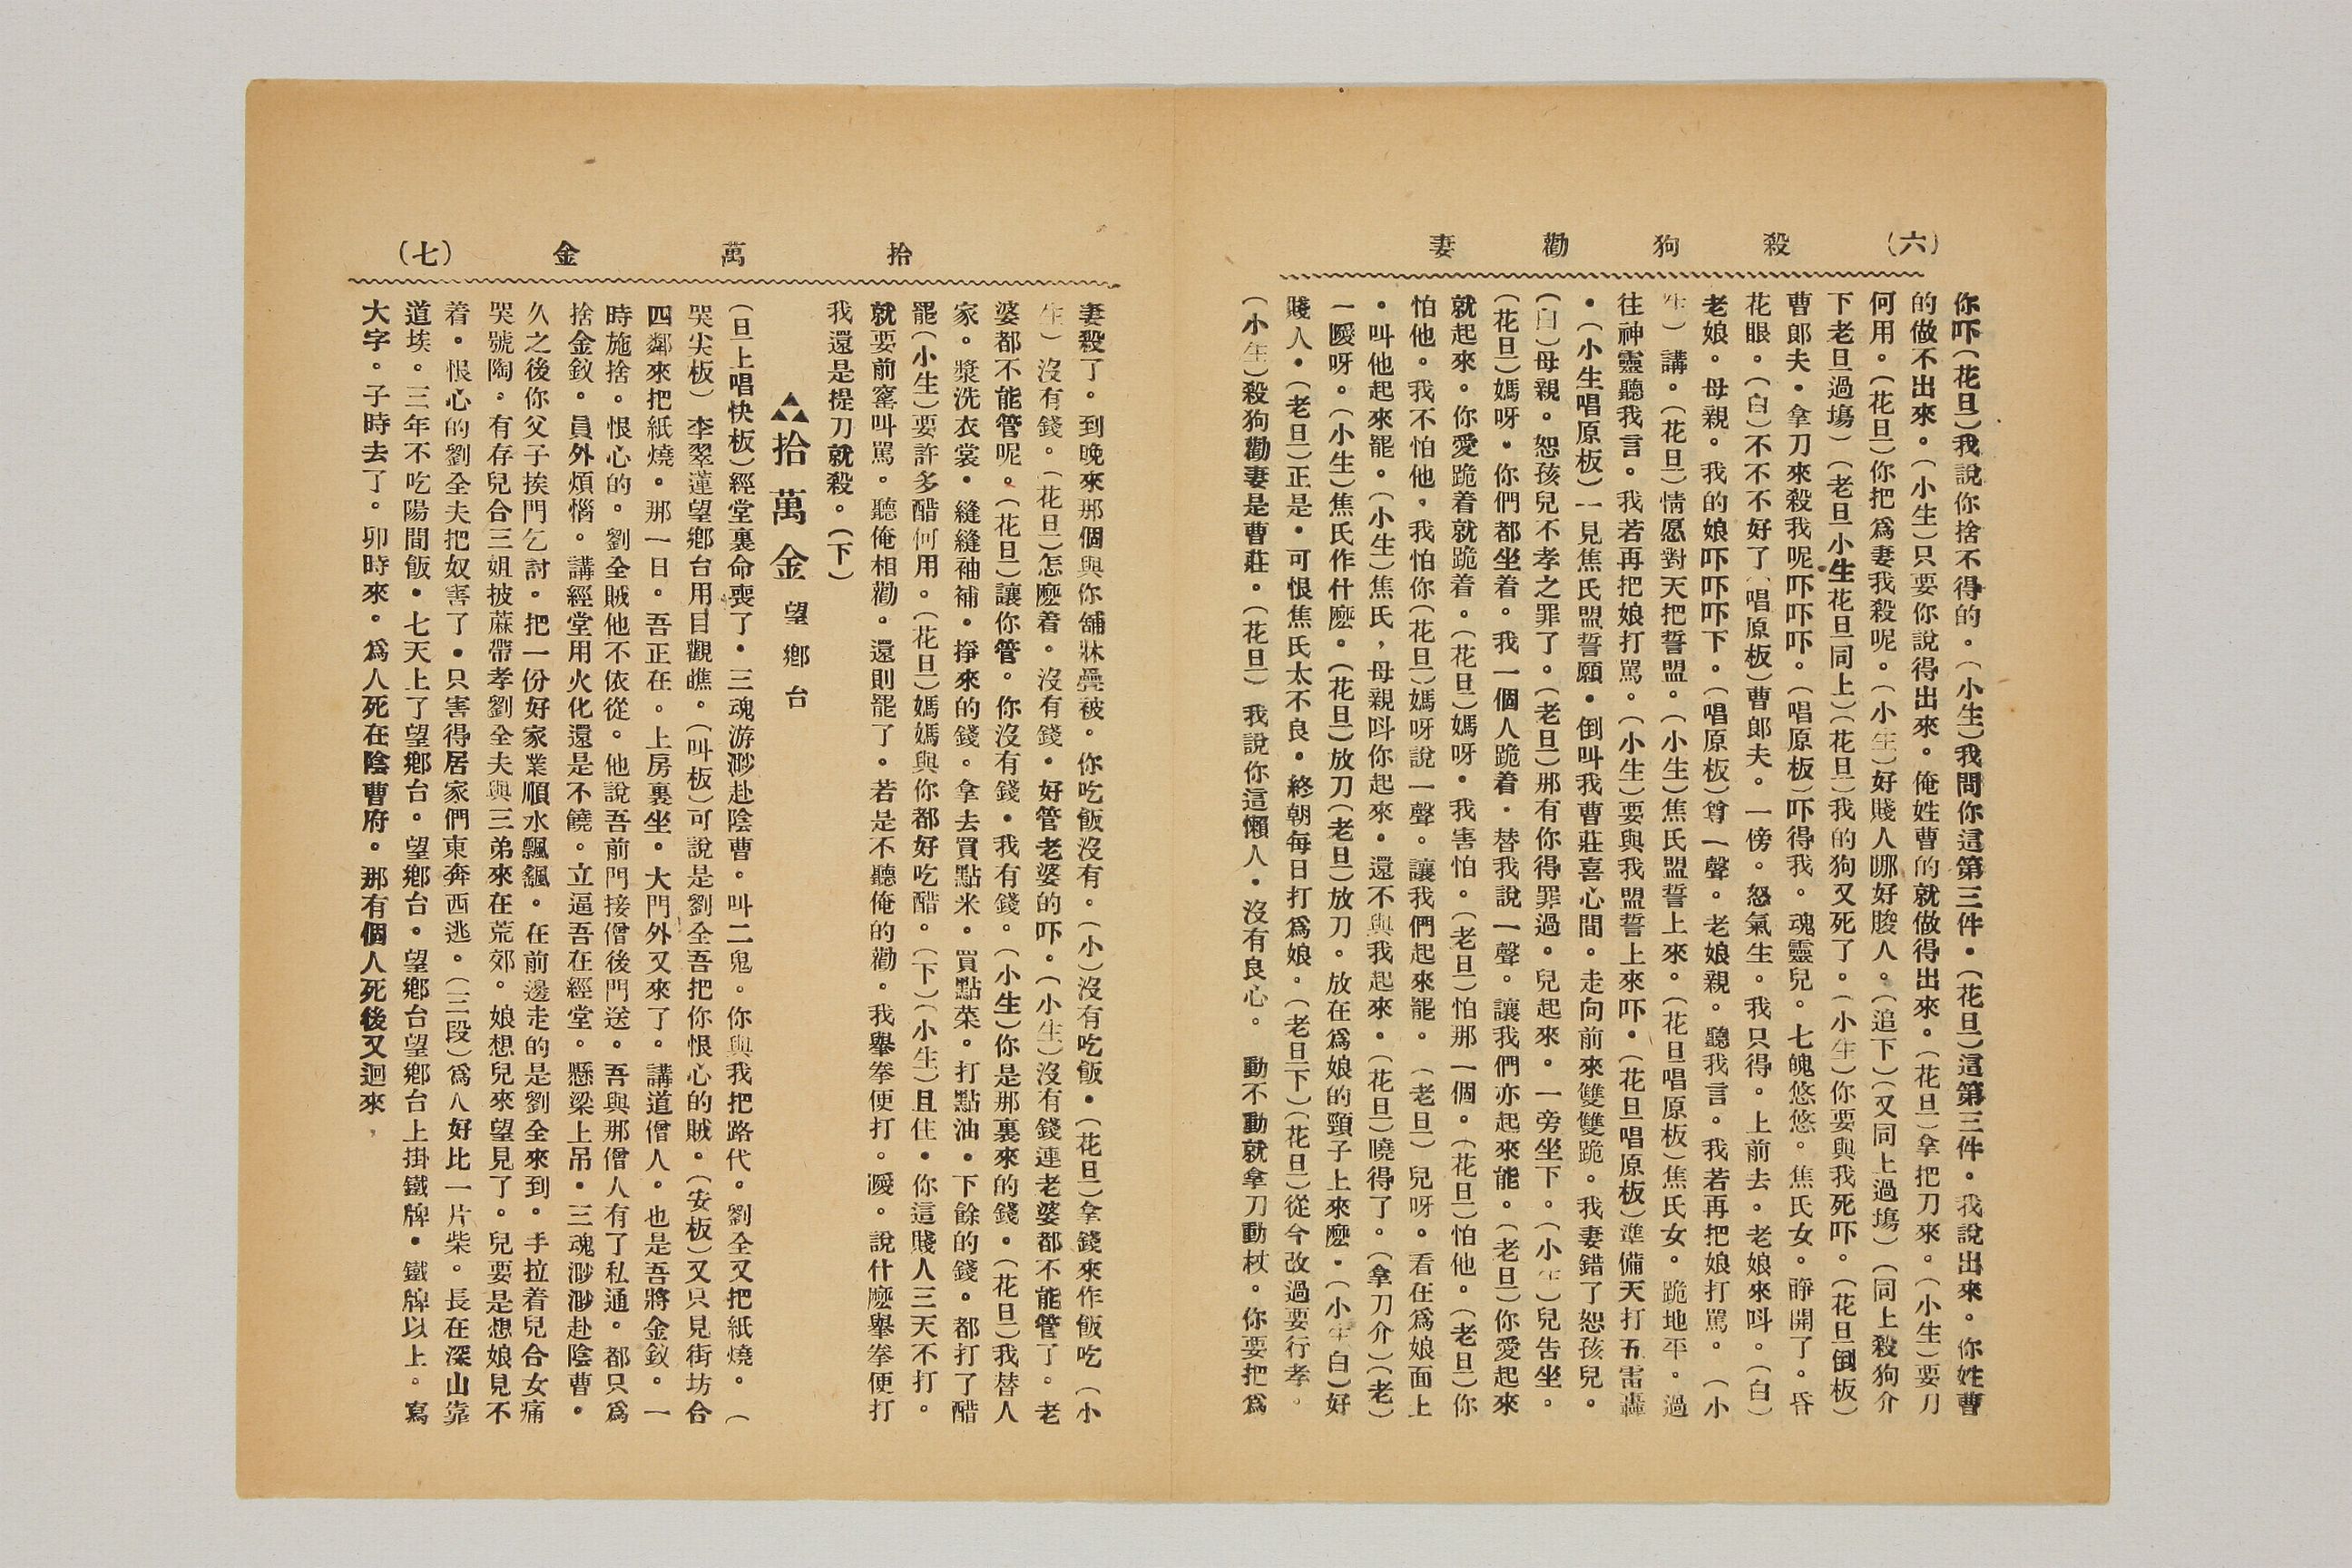 殺狗勸妻（六）
你吓（花旦）我說你捨不得的。（小生）我問你這第三件。（花旦）這第三件。我說出來。你姓曹
的做不出來。（小生）只要你說得出來。俺姓曹的就做得出來。（花旦）拿把刀來。（小生）要刀
何用。（花旦）你把爲妻我殺呢。（小生）好賤人哪好賤人。（追下）（又同上過塲）（同上殺狗介
下老旦過塲）（老旦小生花旦同上）（花旦）我的狗又死了。（小生）你要與我死吓。（花旦倒板）
曹郎夫。拿刀來殺我呢吓吓吓。（唱原板）吓得我。魂靈兒。七魄悠悠。焦氏女。睜開了。昏
花眼。（白）不不不好了（唱原板）曹郎夫。一傍。怒氣生。我只得。上前去。老娘來呌。（白）
老娘。母親。我的娘吓吓吓下。（唱原板）尊一聲。老娘親。聽我言。我若再把娘打罵。（小
生）講。（花旦）情愿對天把誓盟。（小生）焦氏盟誓上來。（花旦唱原板）焦氏女。跪地平。過
往神靈聽我言。我若再把娘打罵。（小生）要與我盟誓上來吓。（花旦唱原板）準備天打五雷轟
。（小生唱原板）一見焦氏盟誓願。倒叫我曹莊喜心間。走向前來雙雙跪。我妻錯了恕孩兒。
（白）母親。恕孩兒不孝之罪了。（老旦）那有你得罪過。兒起來。一旁坐下。（小生）兒告坐。
（花旦）媽呀。你們都坐着。我一個人跪着．替我說一聲。讓我們亦起來能。（老旦）你愛起來
就起來。你愛跪着就跪着。（花旦）媽呀。我害怕。（老旦）怕那一個。（花旦）怕他。（老旦）你
怕他。我不怕他。我怕你（花旦）媽呀說一聲。讓我們起來罷。（老旦）兒呀。看在爲娘面上
。叫他起來罷。（小生）焦氏，母親呌你起來。還不與我起來。（花旦）曉得了。（拿刀介）（老）
一噯呀。（小生）焦氏作什麽。（花旦）放刀（老旦）放刀。放在爲娘的頸子上來麽。（小生白）好
賤人。（老旦）正是。可恨焦氏太不良。終朝每日打爲娘。（老旦下）（花旦）從今改過要行孝。
（小生）殺狗勸妻是曹莊。（花旦）我說你這懶人。沒有良心。動不動就拿刀動杖。你要把爲
拾萬金（七）
妻殺了。到晚來那個與你舖牀疊被。你吃飯沒有。（小）沒有吃飯。（花旦）拿錢來作飯吃（小
生）沒有錢。（花旦）怎麽着。沒有錢。好管老婆的吓。（小生）沒有錢連老婆都不能管了。老
婆都不能管呢。（花旦）讓你管。你沒有錢。我有錢。（小生）你是那裏來的錢。（花旦）我替人
家。漿洗衣裳。縫縫袖補。掙來的錢。拿去買點米。買點菜。打點油。下餘的錢。都打了醋
罷（小生）要許多醋何用。（花旦）媽媽與你都好吃醋。（下）（小生）且住。你這賤人三天不打。
就要前窰叫罵。聽俺相勸。還則罷了。若是不聽俺的勸。我舉拳便打。噯。說什麽舉拳便打
我還是提刀就殺。（下）
拾萬金 望鄉台
（旦上唱快板）經堂裏命喪了。三魂游渺赴陰曹。叫二鬼。你與我把路代。劉全又把紙燒。（
哭尖板）李翠蓮望鄉台用目觀瞧。（叫板）可說是劉全吾把你恨心的賊。（安板）又只見街坊合
四鄰來把紙燒。那一日。吾正在。上房裏坐。大門外又來了。講道僧人。也是吾將金釵。一
時施捨。恨心的。劉全賊他不依從。他說吾前門接僧後門送。吾與那僧人有了私通。都只爲
捨金釵。員外煩惱。講經堂用火化還是不饒。立逼吾在經堂。懸梁上吊。三魂渺渺赴陰曹。
久之後你父子挨門乞討。把一份好家業順水飄颻。在前邊走的是劉全來到。手拉着兒合女痛
哭號陶。有存兒合三姐披蔴帶孝劉全夫與三弟來在荒郊。娘想兒來望見了。兒要是想娘見不
着。恨心的劉全夫把奴害了。只害得居家們東奔西逃。（三段）爲人好比一片柴。長在深山靠
道埃。三年不吃陽間飯。七天上了望鄉台。望鄉台。望鄉台望鄉台上掛鐵牌。鐵牌以上。寫
大字。子時去了。卯時來。爲人死在陰曹府。那有個人死後又迴來，